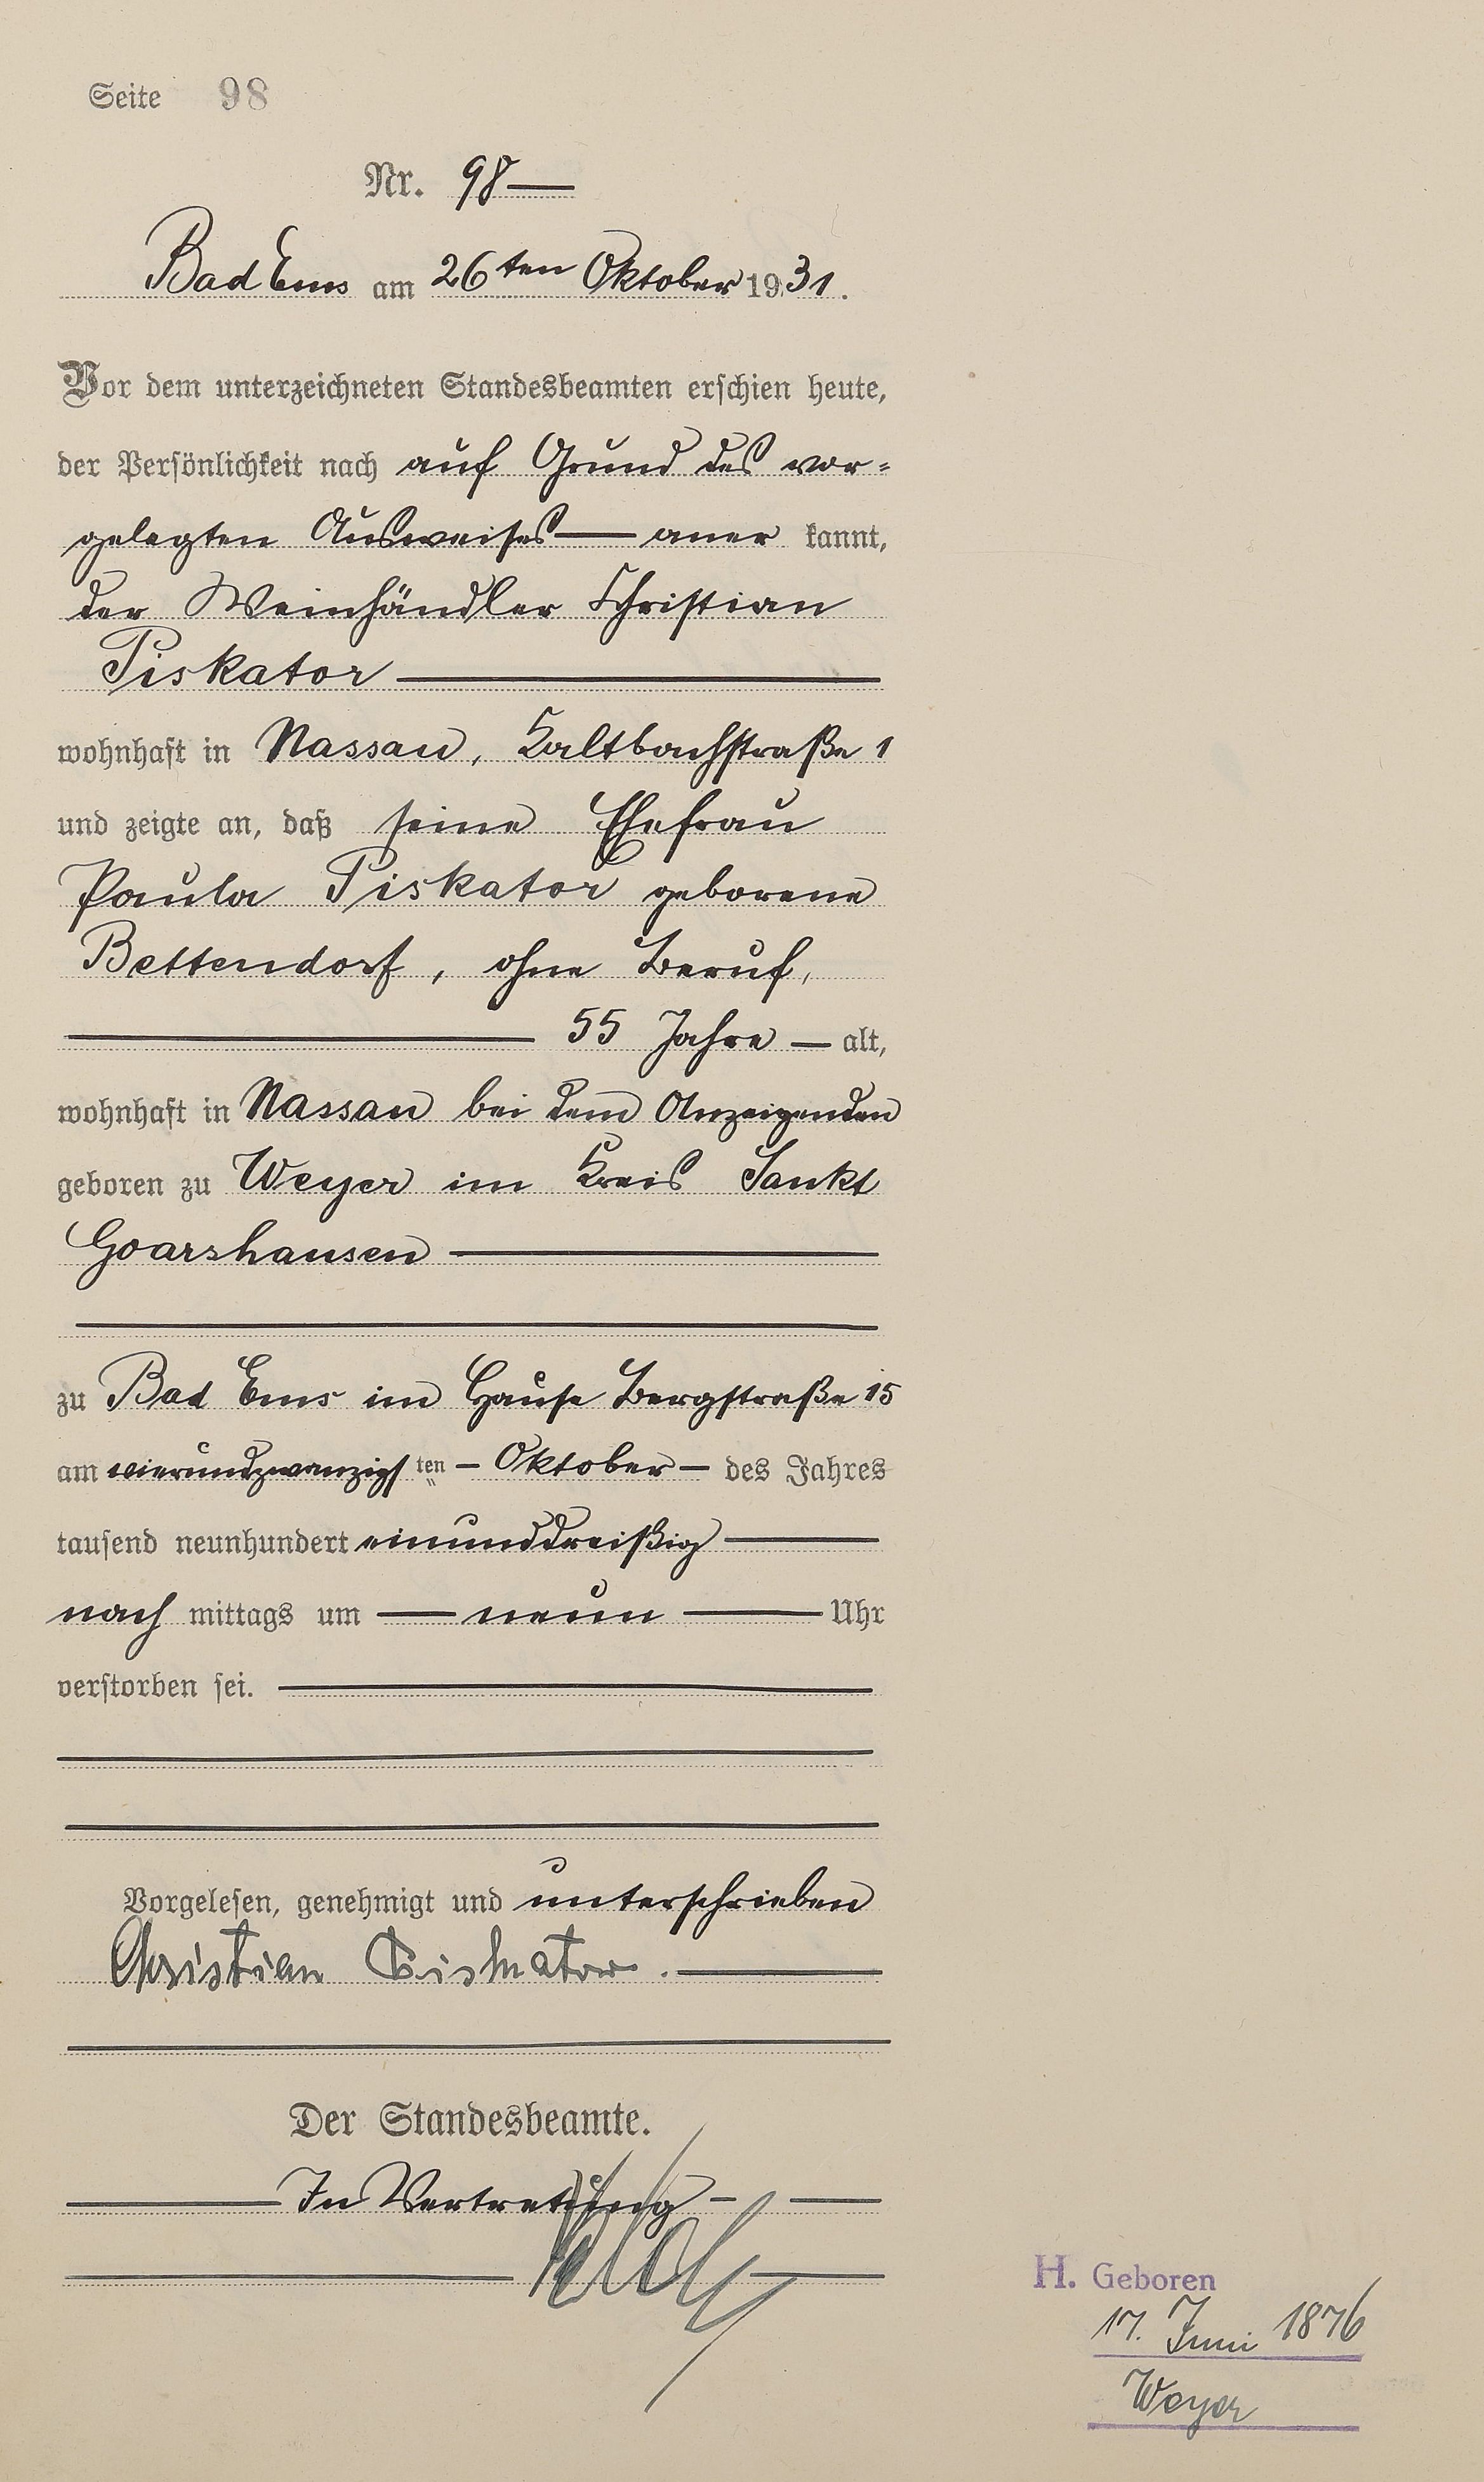 Seite 98
Nr. 98
Bad Ems am 26ten Oktober 1931.
Vor dem unterzeichneten Standesbeamten erschien heute,
der Persönlichkeit nach auf Grund des vor-
gelegten Ausweises aner kannt,
der Weinhändler Christian
Piskator
wohnhaft in Nassau, Kaltbachstraße 1
und zeigte an, daß seine Ehefrau
Paula Piskator geborene
Bettendorf, ohne Beruf,
55 Jahre alt,
wohnhaft in Nassau bei dem Anzeigenden
geboren zu Weyer im Kreis Sankt
Goarshausen
zu Bad Ems im Hause Bergstraße 15
am vierundzwanzigsten Oktober des Jahres
tausend neunhundert einunddreißig
nach mittags um neun Uhr
verstorben sei.
Vorgelesen, genehmigt und unterschrieben
Christian Piskator.
Der Standesbeamte.
In Vertretung
H. Geboren
17. Juni 1876
Weyer